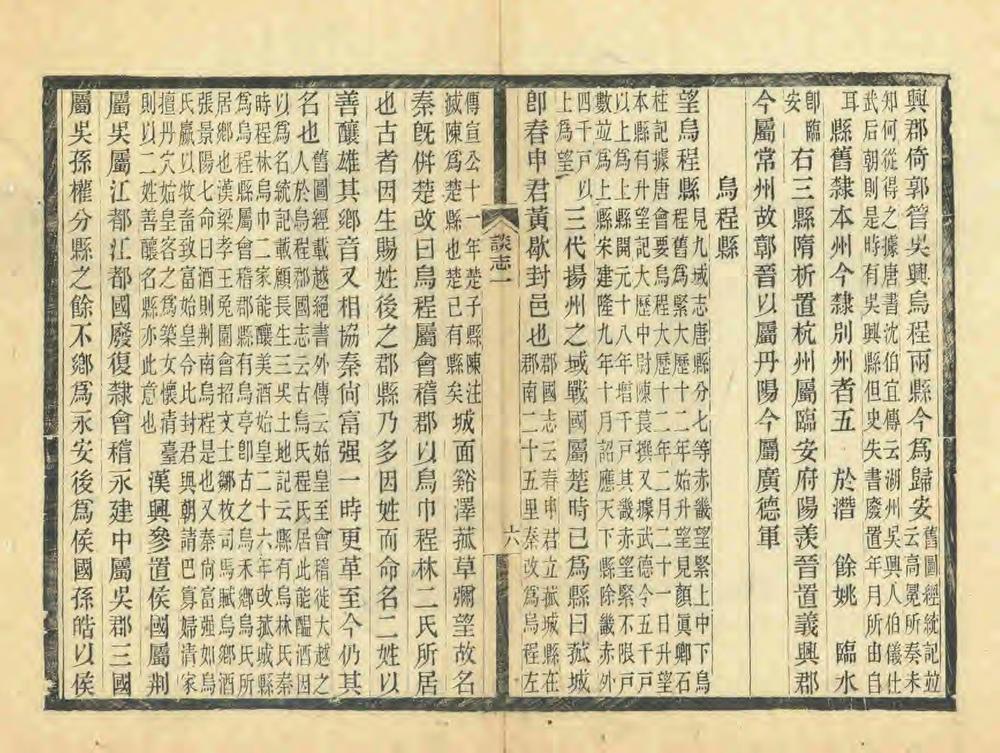 興郡倚郭管吳興烏程兩縣今爲歸安舊圖經統記並云高冕所奏未
知何從得之據唐書沈伯宜傳云湖州吳興人伯儀仕
武后朝則是時有吳興縣但史失書廢置年月所由自
耳 縣舊隸本州今隸別州者五 於潛 餘姚 臨水
卽臨安 右三縣隋析置杭州屬臨安府陽羨晉置義興郡
今屬常州故鄣晉以屬丹陽今屬廣德軍
烏程縣
望烏程縣見九域志唐縣分七等赤畿望緊上中下烏程舊爲緊大歷十二年始升望見顏眞卿石
柱記據唐會要烏程大歷十二年二月二十一日升望
本縣有升望記大歷中尉陳萇撰又據武德令五千戸
以上爲上縣開元十八年增千戸其畿赤望緊不限戸
數並爲上縣宋建隆九年十月詔應天下縣除畿赤外
四千戸以上爲望 三代揚州之域戰國屬楚時已爲縣曰菰城
卽春申君黃歇封邑也郡國志云春申君立菰城縣在郡南二十五里秦改爲烏程左
談志一
六
傳宣公十一年楚子縣陳注滅陳爲楚縣也楚已有縣矣城面谿澤菰草彌望故名
秦旣併楚改曰烏程屬會稽郡以烏巾程林二氏所居
也古者因生賜姓後之郡縣乃多因姓而命名二姓以
善釀雄其鄉音又相協秦尙富强一時更革至今仍其
名也舊圖經載越絕書外傳云始皇至會稽徙大越之人於烏程郡國志云古烏氏程氏居此能醖酒因
以爲名統記載顧長生三吳土地記云縣有烏林氏秦
時程林烏巾二家能釀美酒始皇二十六年改菰城縣
爲烏程縣屬會稽郡縣有烏亭卽古之烏禾鄉烏氏所
居鄉也漢梁孝王兔園會招文士鄒枚司馬賦烏鄉酒
張景陽七命曰酒則荆南烏程是也又秦尙富强如烏
氏臝以牧畜致富始皇令比封君與朝請巴寡婦清家
擅丹穴始皇客之爲築女懷清臺則以二姓善釀名縣亦此意也 漢興參置侯國屬荆
屬吳屬江都江都國廢復隸會稽永建中屬吳郡三國
屬吳孫權分縣之餘不鄉爲永安後爲侯國孫皓以侯